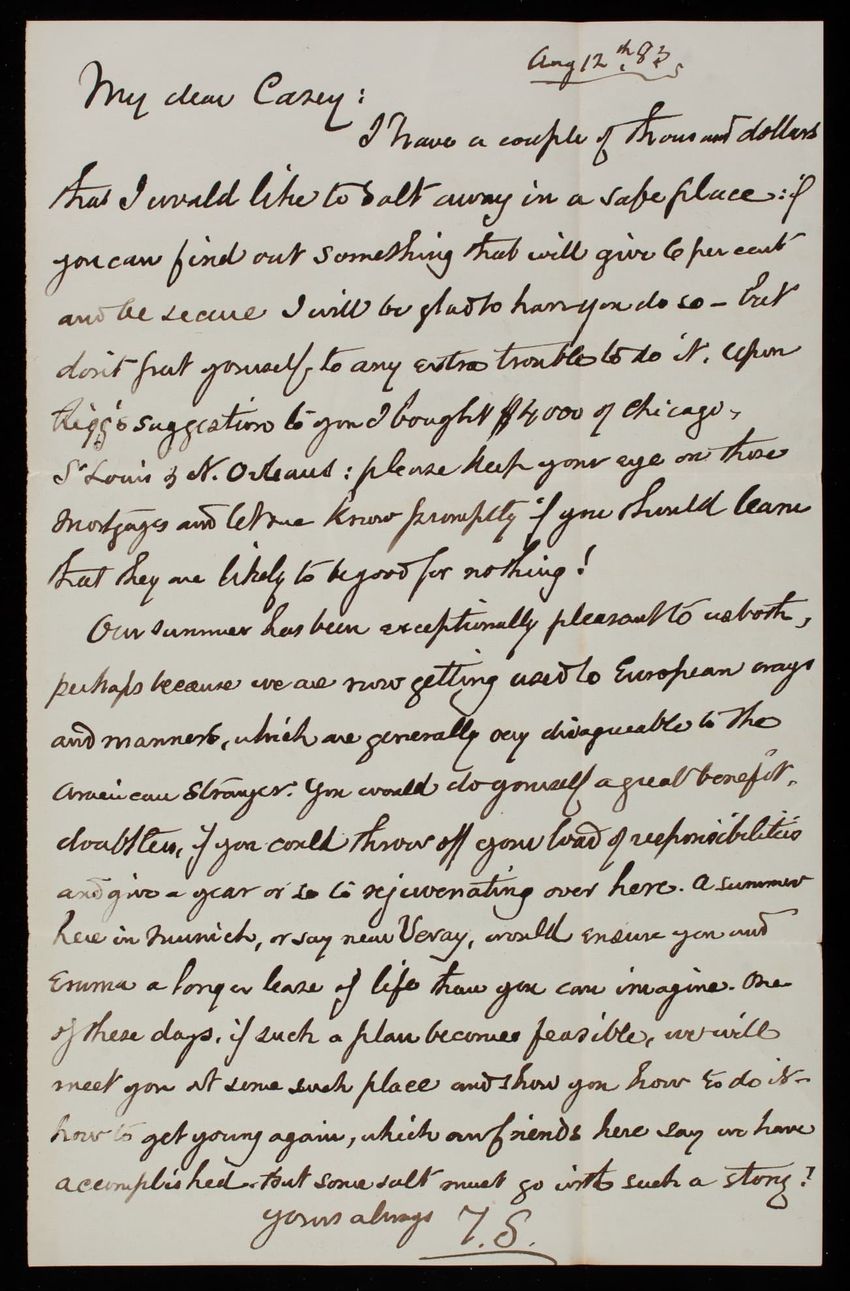 Aug 12th. 83.
My dear Casey:
I have a couple of thousand dollars
that I would like to salt away in a safe place: if
you can find out something that will give 6 per cent
and be secure I will be glad to have you do so - but
don't put yourself to any extra trouble to do it. Upon
Rigg's suggestion to you I bought $4000 of Chicago,
St Louis & N. Orleans: please keep your eye on those
mortgages and let me know promptly if you should learn
that they are likely to be good for nothing!
Our summer has been exceptionally pleasant to us both,
perhaps because we are now getting used to European ways
and manners, which are generally very disagreeable to the
American stranger. You would do yourself a great benefit,
doubtless, if you could throw off your load of responsibilities
and give a year or so to rejuvenating over here. A summer
here in Munich, or say near Vevay, would ensure you and
Emma a longer lease of life than you can imagine. One
of these days, if such a plan becomes feasible, we will
meet you at some such place and show you how to do it -
how to get young again, which our friends here say we have
accomplished - but some salt must go with such a story!
yours always T. S.